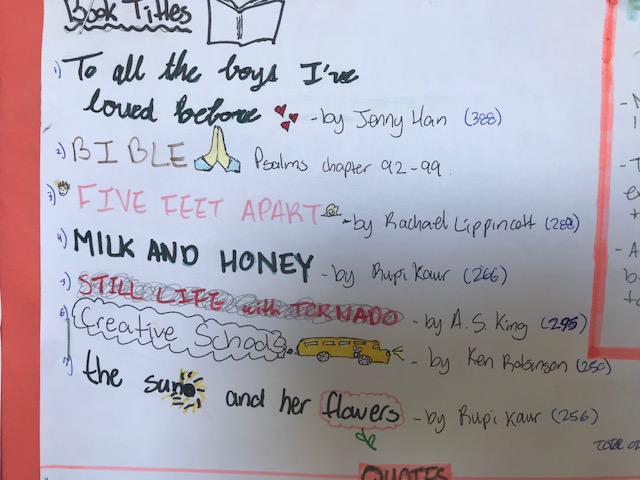 Book Titles
1) To all the boys I've
loved before - by Jenny Han (388)
2) BIBLE Psalms chapter 92-99.
3) FIVE FEET APART - by Rachael Lippincott (288)
4) MILK AND HONEY - by Rupi Kaur (266)
5) STILL LIFE with TORNADO - by A.S. King (295)
6) Creative Schools - by Ken Robinson (250)
7) the sun and her flowers - by Rupi Kaur (256)
QUOTES